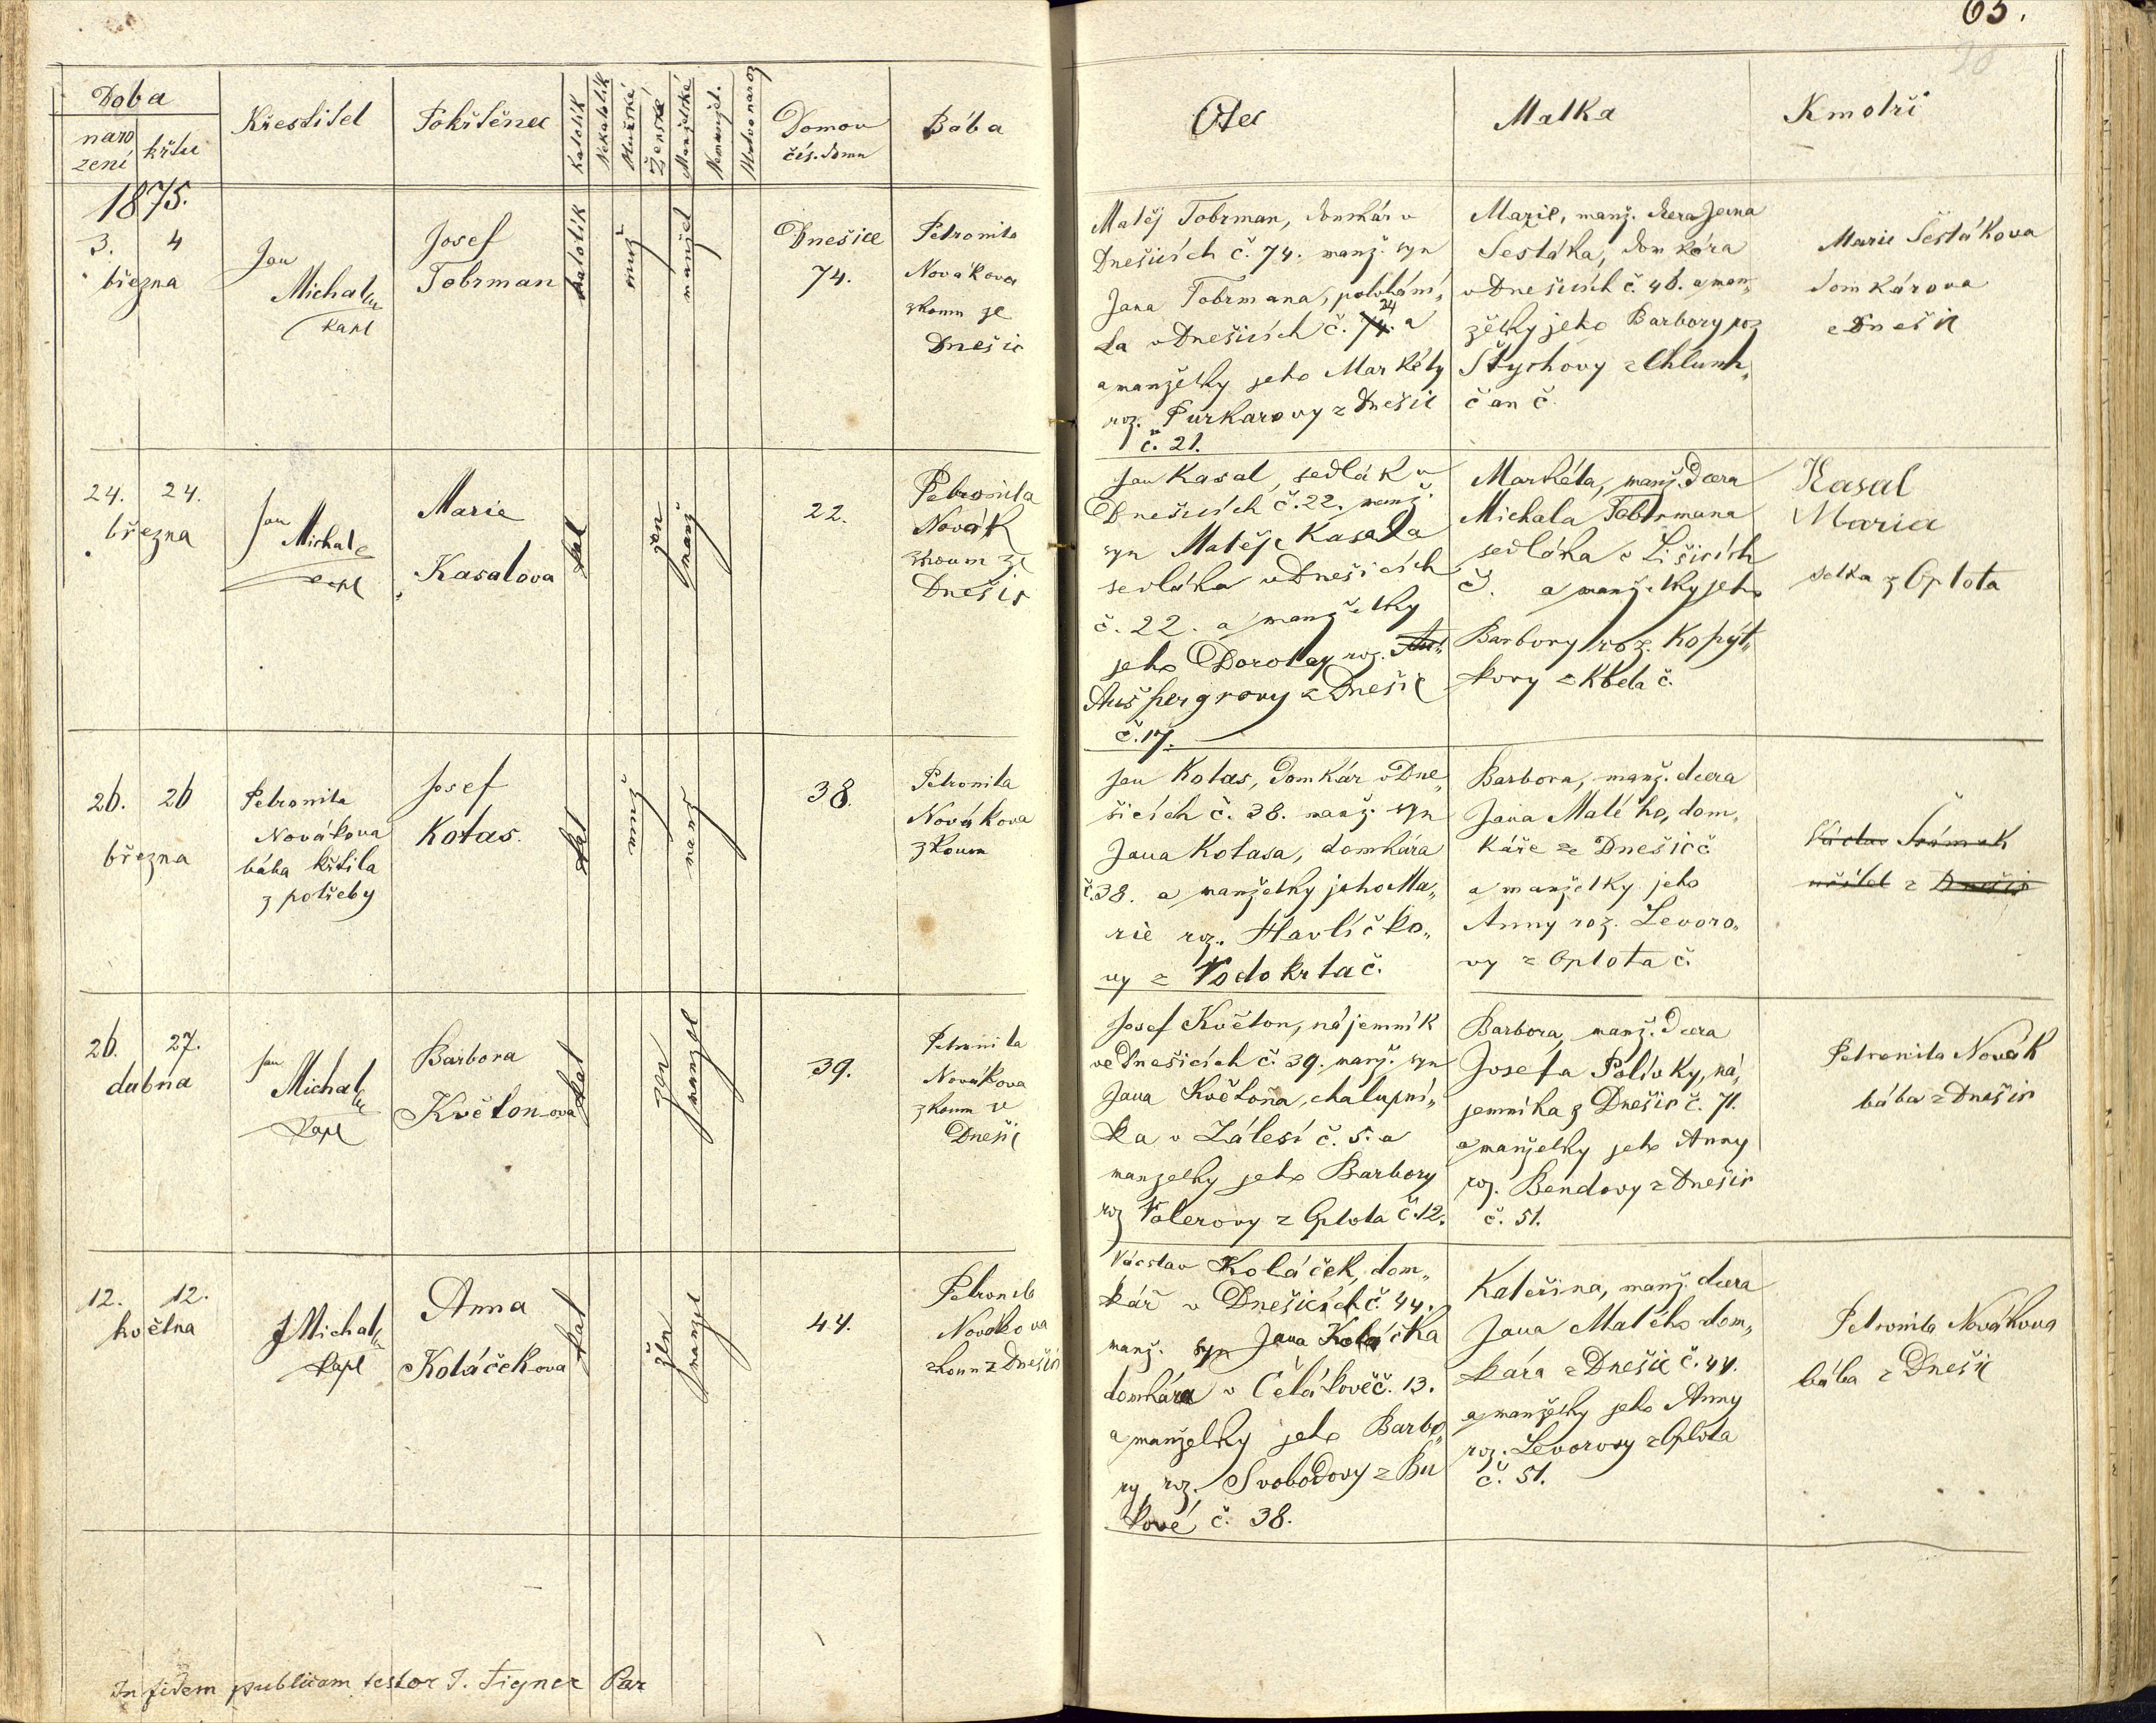 65.
Doba
naro
zení
křtu
Křestitel
Pokřtěnec
Katolík
Nekatolík
Mužské
Ženské
Manželské
Nemanžel.
Mrtvonaroz
Domov
čís. domu
Bába
Otec
Matka
Kmotři
1875.
3. 4
března
Jan
Michal
kapl
Josef
Tobrman
katolík
muž
manžel
Dnešice
74.
Petronila
Novákova
zkoum ze
Dnešic
Matěj Tobrman, domkár v
Dnešicích č. 74. manž. syn
Jana Tobrmana, polulání„
24
ka v Dnešicích č. 74. a
a manželky jeho Markéty
roz. Purkarovy z Dnešic
č. 21.
Marie, manž. dcera Jana
Šestáka, domkára
v Dnešicích č. 46. a man„
želky jeho Barbory roz
Štychovy z Chlum„
čan č.
Marie Šestákova
domkárova
z Dnešic
24. 24.
března
Jan
Michal
kapl
Marie
Kasalova
kat
žen
manž
22.
Petronila
Novák
zkoum ze
Dnešic
Jan Kasal, sedlák v
Dnešicích č. 22. manž.
syn Matěje Kasala
sedláka v Dnešicích
č. 22. a manželky
jeho Doroty roz.
Aušpergrovy z Dnešic
č. 17.
Markéta, manž. dcera
Michala Tobrmana
sedláka v Lišicích
č. a manželky jeho
Barbory roz. Kopýt„
kovy z Kbela č.
Kasal
Maria
selka z Oplota
26. 26
března
Petronila
Novákova
bába křtila
z potřeby
Josef
Kotas.
kat
muž
manž
38.
Petronila
Novákova
zkoum
Jan Kotas, domkár v Dne„
šicích č. 38. manž. syn
Jana Kotasa, domkára
č. 38. a manželky jeho Ma„
rie roz. Havlíčko„
vy z Vodokrta č.
Barbora, manž. dcera
Jana Malého, dom„
káře ze Dnešic č
a manželky jeho
Anny roz. Levoro„
vy z Oplota č.
Václav Šrámek
učitel z Dnešic
26. 27.
dubna
Jan
Michal
kapl
Barbora
Květon-ova
kat
žen
manžel
39.
Petronila
Novákova
zkoum ze
Dnešic
Josef Květon, nájemník
ve Dnešicích č. 39. manž. syn
Jana Květoňa, chalupní„
ka v Zálesí č. 5. a
manželky jeho Barbory
roz Valerovy z Oplota č. 12.
Barbora, manž. dcera
Josefa Polívky, ná„
jemníka z Dnešic č. 71.
a manželky jeho Anny
roz. Bendovy z Dnešic
č. 51.
Petronila Novák
bába z Dnešic
12. 12.
května
J Michal
kapl
Anna
Koláček ova
kat
žen
manžel
44.
Petronila
Novákova
zkoum z Dnešic
Václav Koláček, dom„
kář v Dnešicích č. 44.
manž. syn Jana Koláčka
domkára v Čelákově č. 13.
a manželky jeho Barbo„
ry roz. Svobodovy z Bu
kové č. 38.
Kateřina, manž. dcera
Jana Malého dom„
kára z Dnešic č. 44.
a manželky jeho Anny
roz. Levorovy z Oplota
č. 51.
Petronila Novákova
bába z Dnešic
In fidem publicam testor J. Tigner Par